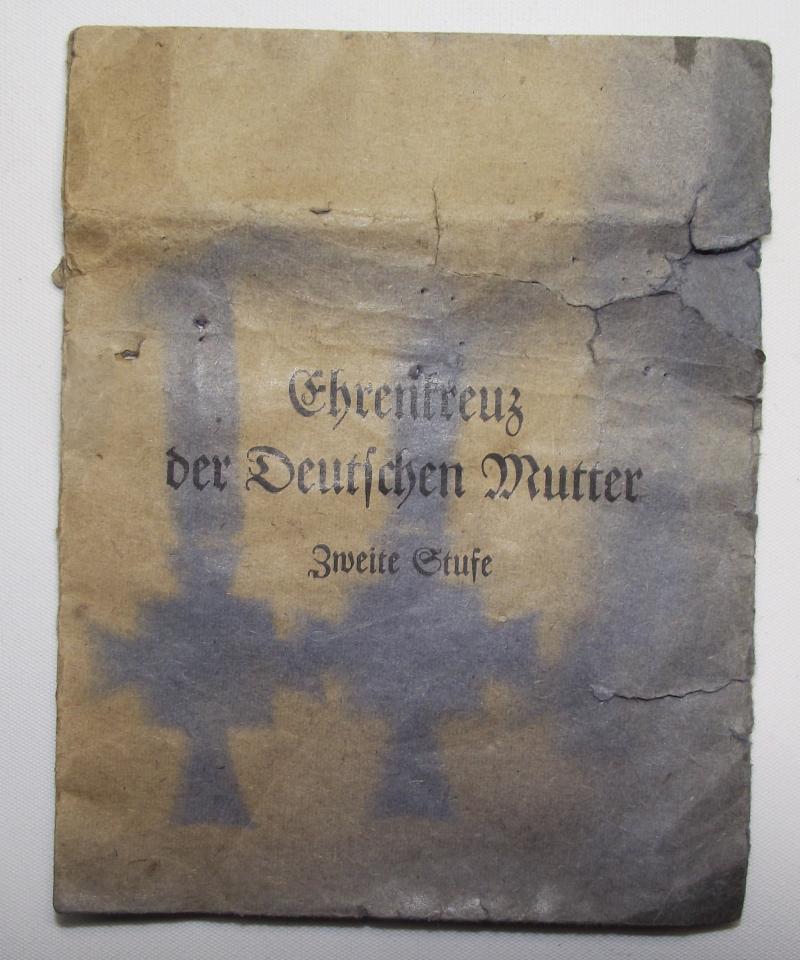 Ehrenkreuz
der Deutschen Mutter
Zweite Stufe